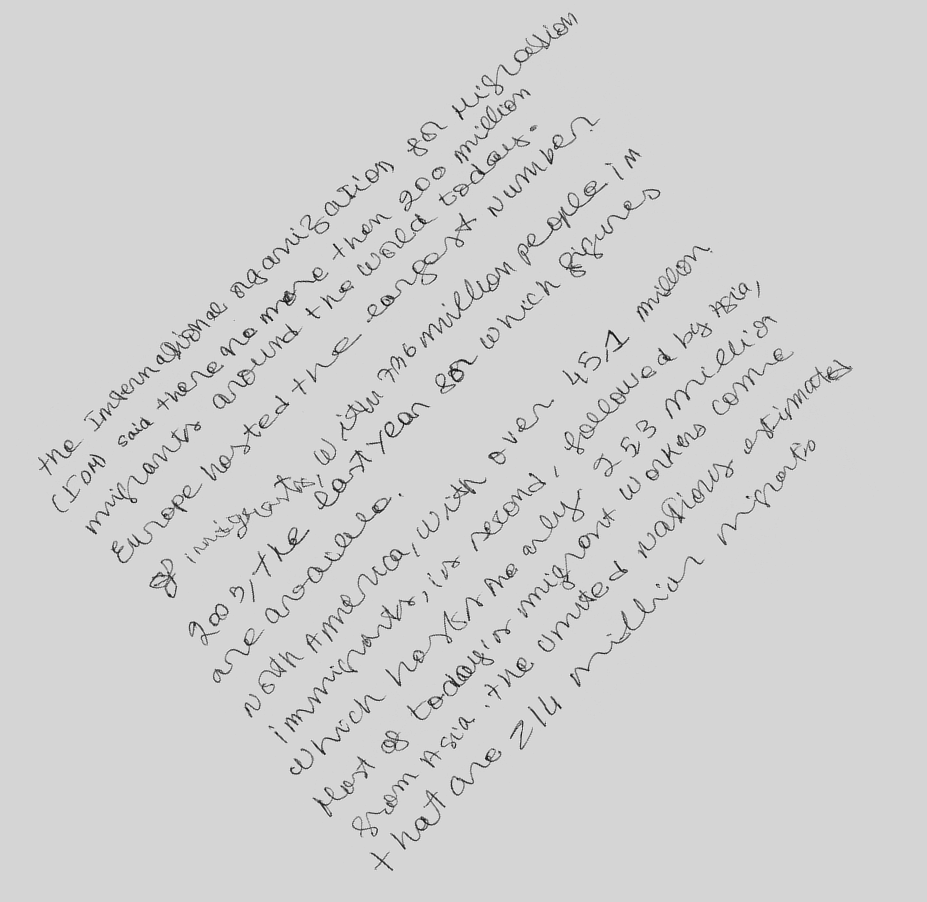 the International organization for Migration
(IOM) said there no more then 200 million
migrants around the world today.
Europe hosted the largest number
of immigrants, with 7.76 million people in
2005, the last year for which figures
are available.
North America, with over 45.1 million
immigrants, is second, followed by Asia,
which hosts me only 253 million
Most of today's migrant workers come
from Asia. the united nations estimated
that are 214 million migrants